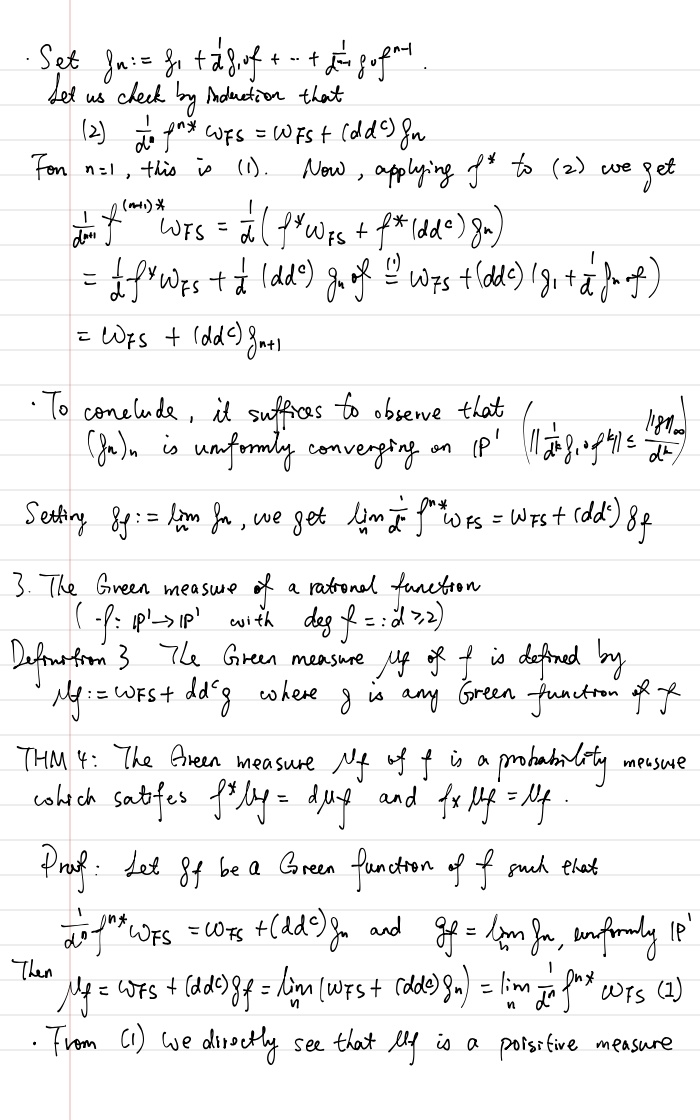 · Set g_n := g_1 + 1/d g_1∘f + ·· + 1/d^{n-1} g∘f^{n-1}.
Let us check by Induction that
(2) 1/d^n f^{n*} ω_FS = ω_FS + (dd^c) g_n
For n=1, this is (1). Now, applying f* to (2) we get
1/d^{n+1} f^{(n+1)*} ω_FS = 1/d ( f*ω_FS + f*(dd^c) g_n )
= 1/d f*ω_FS + 1/d (dd^c) g_n∘f (1)= ω_FS + (dd^c) (g_1 + 1/d g_n∘f)
= ω_FS + (dd^c) g_{n+1}
· To conclude, it suffices to observe that
(g_n)_n is uniformly converging on IP^1 ( ||1/d^k g_1∘f^k|| ≤ ||g_1||_∞/d^k )
Setting g_f := lim_n g_n, we get lim_n 1/d^n f^{n*} ω_FS = ω_FS + (dd^c) g_f
3. The Green measure of a rational function
( f: IP^1 → IP^1 with deg f =: d ≥ 2)
Definition 3 The Green measure μ_f of f is defined by
μ_f := ω_FS + dd^c g where g is any Green function of f
THM 4: The Green measure μ_f of f is a probability measure
which satifes f*μ_f = dμ_f and f_* μ_f = μ_f .
Proof: Let g_f be a Green function of f such that
1/d^n f^{n*} ω_FS = ω_FS + (dd^c) g_n and g_f = lim_n g_n, uniformly IP^1
Then
μ_f = ω_FS + (dd^c) g_f = lim_n (ω_FS + (dd^c) g_n) = lim_n 1/d^n f^{n*} ω_FS (1)
· From (1) we directly see that μ_f is a poisitive measure